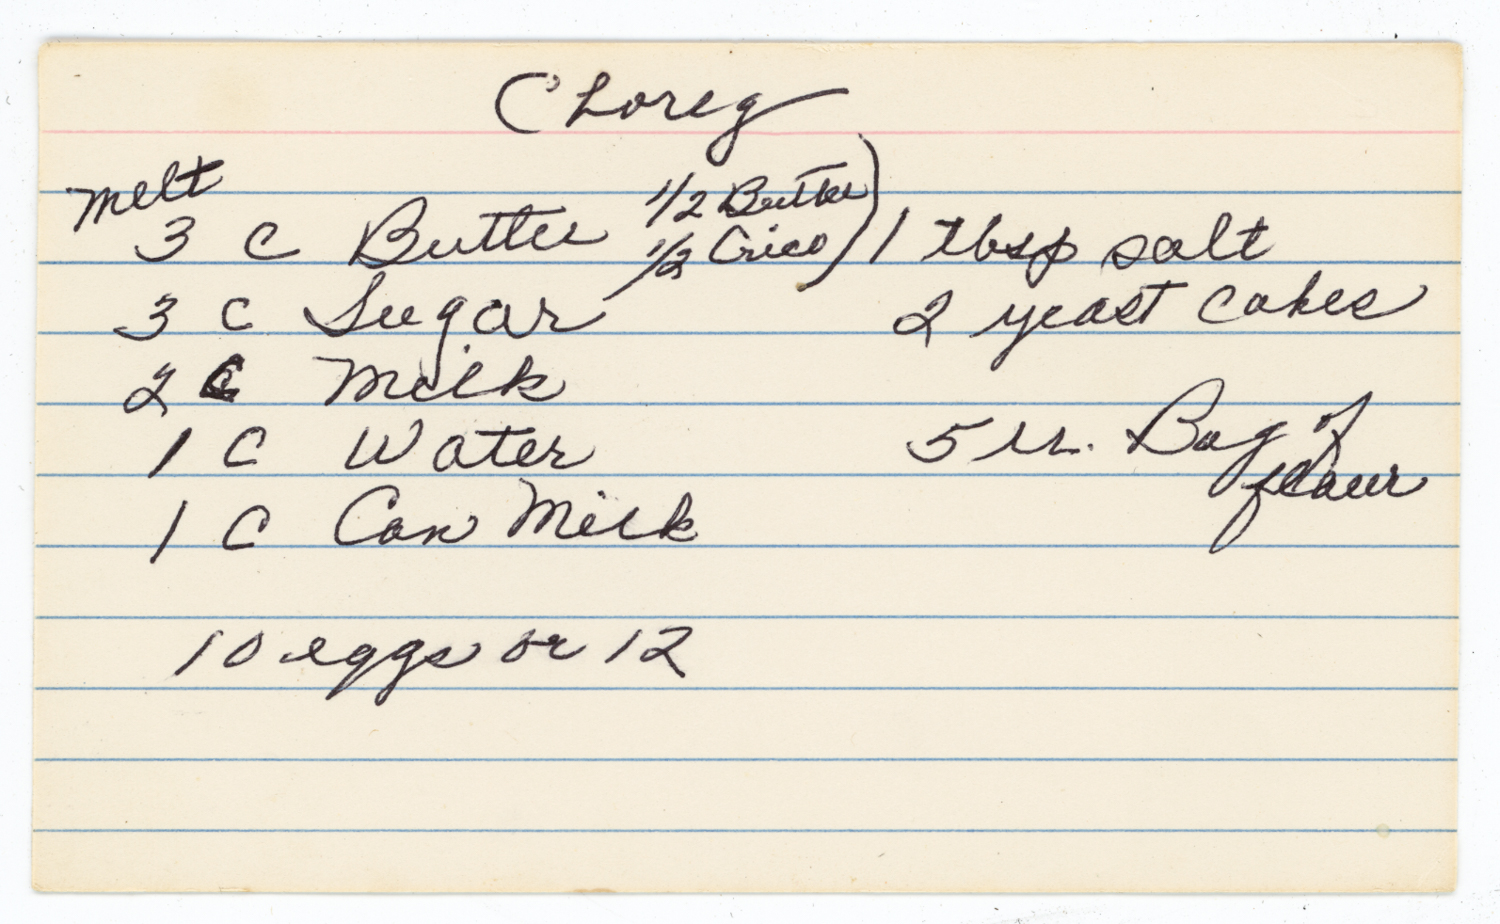 Choreg
melt
3 c Butter 1/2 Butter
1/2 Crico)
3 c Sugar
2 c Milk
1 c Water
1 c Can Milk
10 eggs or 12
1 tbsp salt
2 yeast cakes
5 lb. Bag of
flour